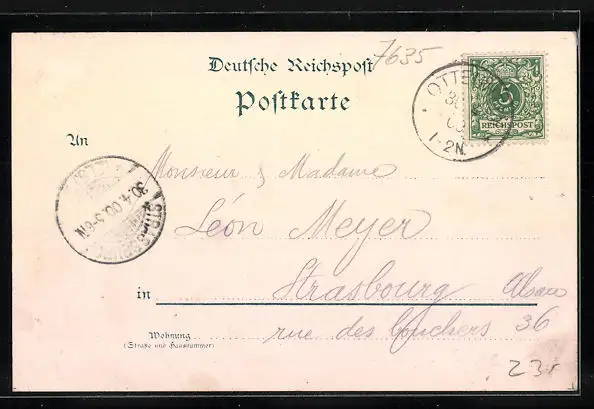 7635
Deutsche Reichspost
Postkarte
OTTE
30
00
1-2N.
5
REICHSPOST
An
Monsieur & Madame
STRASSBURG
30.4.00.5-6N
Léon Meyer
in Strasbourg Alsace
Wohnung rue des bouchers 36
(Straße und Hausnummer)